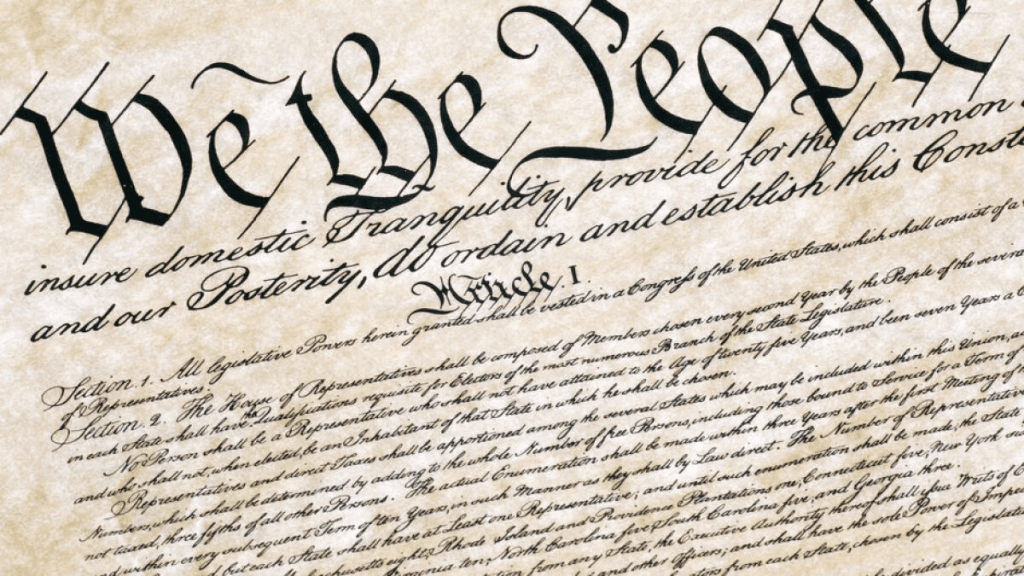 We the People
insure domestic Tranquility, provide for the common
and our Posterity, do ordain and establish this Const
Article. I.
Section. 1. All legislative Powers herein granted shall be vested in a Congress of the United States, which shall consist of a
of Representatives.
Section. 2. The House of Representatives shall be composed of Members chosen every second Year by the People of the several
in each State shall have the Qualifications requisite for Electors of the most numerous Branch of the State Legislature.
No Person shall be a Representative who shall not have attained to the Age of twenty five Years, and been seven Years a
and who shall not, when elected, be an Inhabitant of that State in which he shall be chosen.
Representatives and direct Taxes shall be apportioned among the several States which may be included within this Union,
Numbers, which shall be determined by adding to the whole Number of free Persons, including those bound to Service for a Term of
not taxed, three fifths of all other Persons. The actual Enumeration shall be made within three Years after the first Meeting of
and within every subsequent Term of ten Years, in such Manner as they shall by Law direct. The Number of Representatives
but each State shall have at Least one Representative; and until such enumeration shall be made, the State
eight, Rhode Island and Providence Plantations one, Connecticut five, New York
ten, North Carolina five, South Carolina five, and Georgia three.
from any State, the Executive Authority thereof shall issue Writs of
and other Officers; and shall have the sole Power of
from each State, chosen by the
divided as equally